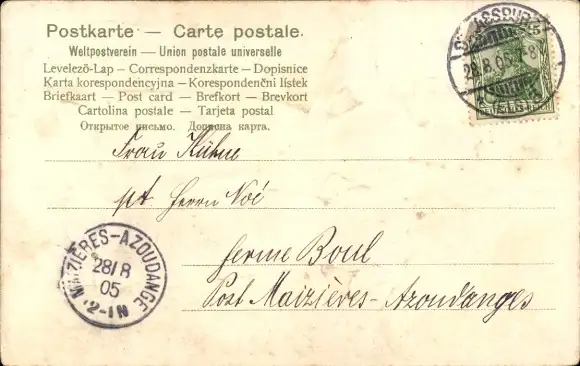 Postkarte — Carte postale.
Weltpostverein — Union postale universelle
Levelező-Lap — Correspondenzkarte — Dopisnice
Karta korespondencyjna — Korespondenční lístek
Briefkaart — Post card — Brefkort — Brevkort
Cartolina postale — Tarjeta postal
Открытое письмо. Дописна карта.
Frau Kühne
pt Herrn Noé
ferme Boul
Post Maizières-Azoudanges
STRASSBURG
28.8.05
(ELS.)
5
MAIZIERES-AZOUDANGE
28/8
05
12-1N